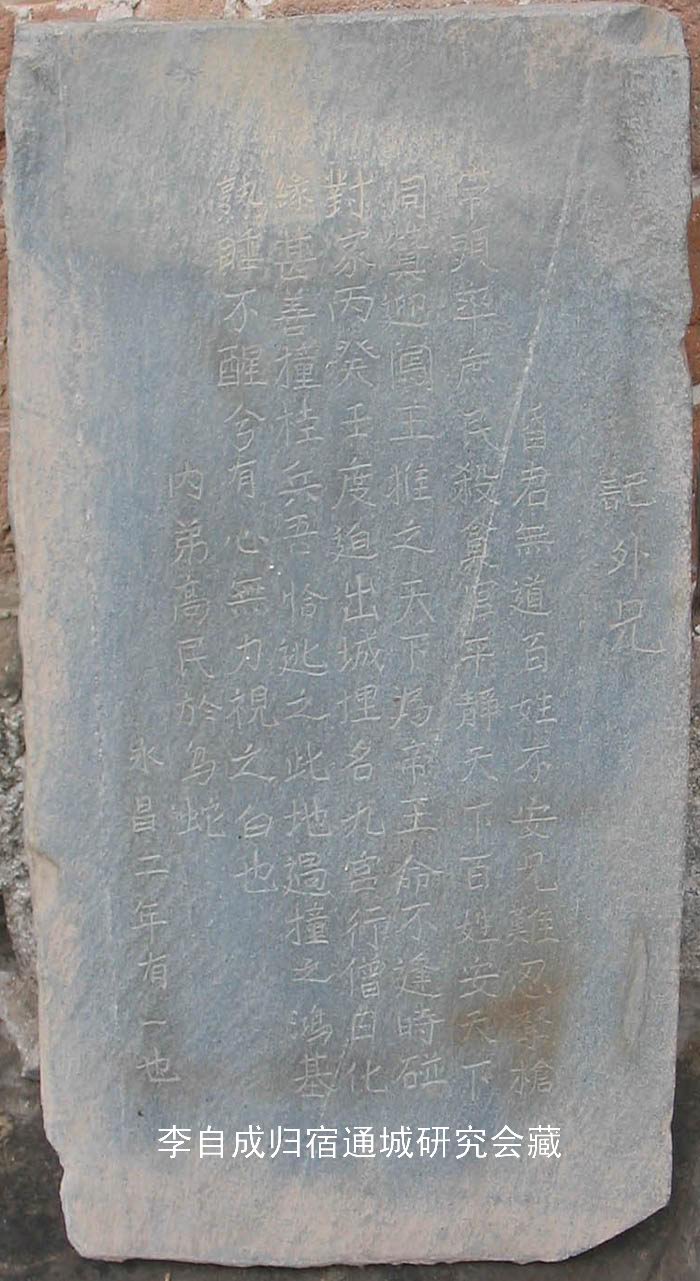 記外兄
昏君無道百姓不安兄難忍拏槍
帶頭率庶民殺貪官平靜天下百姓安天下
同箕迎闖王推之天下為帝王命不逢時碰
對家丙癸壬度迫出城埋名九宮行僧自化
緣甚善撞桂兵吾恰逃之此地遇撞之鴻基
孰睡不醒兮有心無力視之白也
內弟高民於烏蛇
永昌二年有一也
李自成归宿通城研究会藏